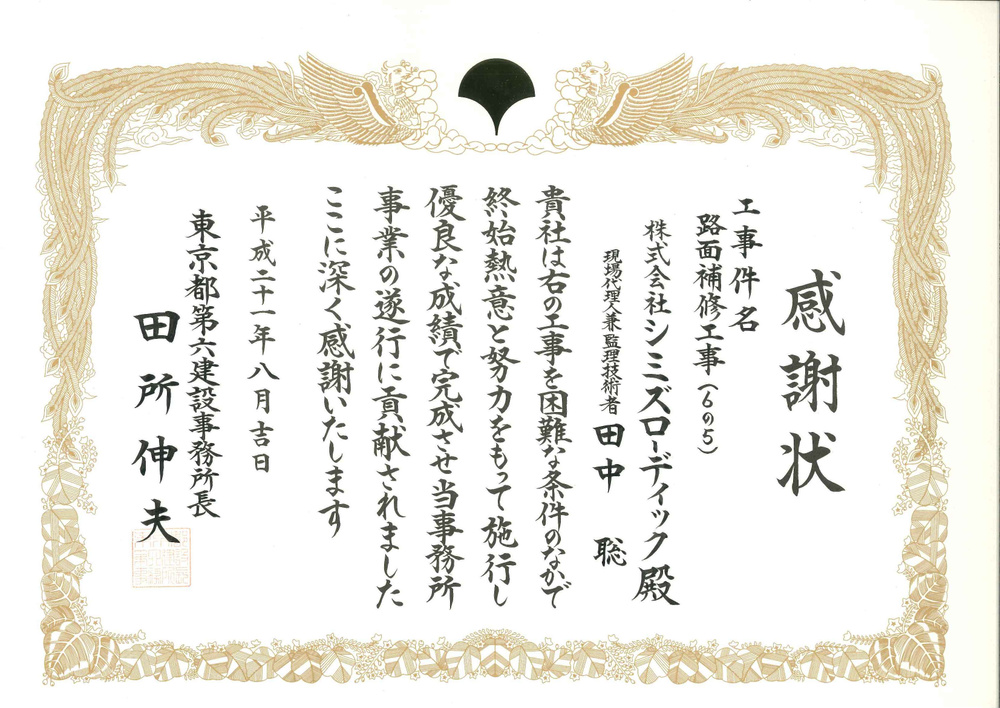 感謝状
工事件名
路面補修工事(6の5)
株式会社シミズローディック殿
現場代理人兼監理技術者 田中 聡
貴社は右の工事を困難な条件のなかで
終始熱意と努力をもって施行し
優良な成績で完成させ当事務所
事業の遂行に貢献されました
ここに深く感謝いたします
平成二十一年八月吉日
東京都第六建設事務所長
田所伸夫